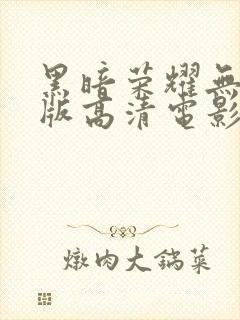 黑暗荣耀無
版高清電影
燉肉大鍋菜